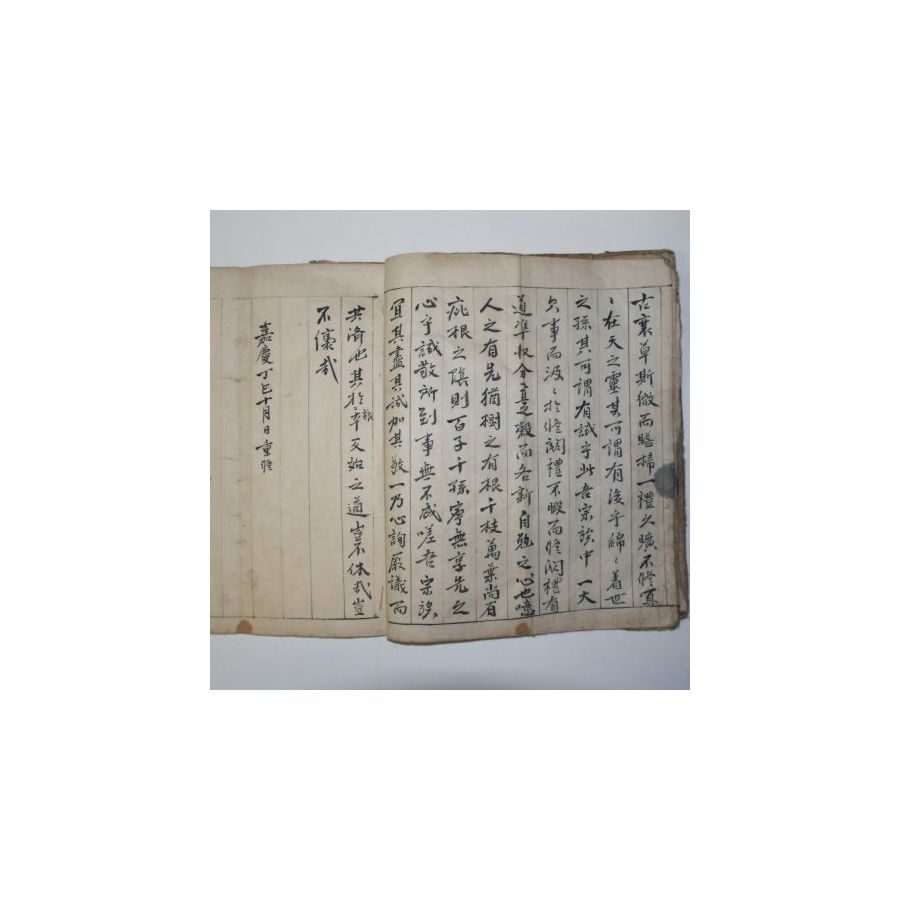 古裏草斯微而瞻掃一禮久曠不修冥
〻在天之靈其可謂有後乎綿〻着世
之孫其可謂有誠乎此吾宗族中一大
欠事而汲〻扵修闕禮不暇而修闕禮有
道準收合之穀而各新自勉之心也噫
人之有先猶樹之有根千枝萬葉尚有
庇根之蔭則百子千孫寧無享先之
心乎誠敬所到事無不成嗟吾宗族
宜其盡其誠加其敬一乃心詢厥議而
共濟也其扵報本反始之道豈不休哉豈
不懿哉
嘉慶丁巳十月日重修